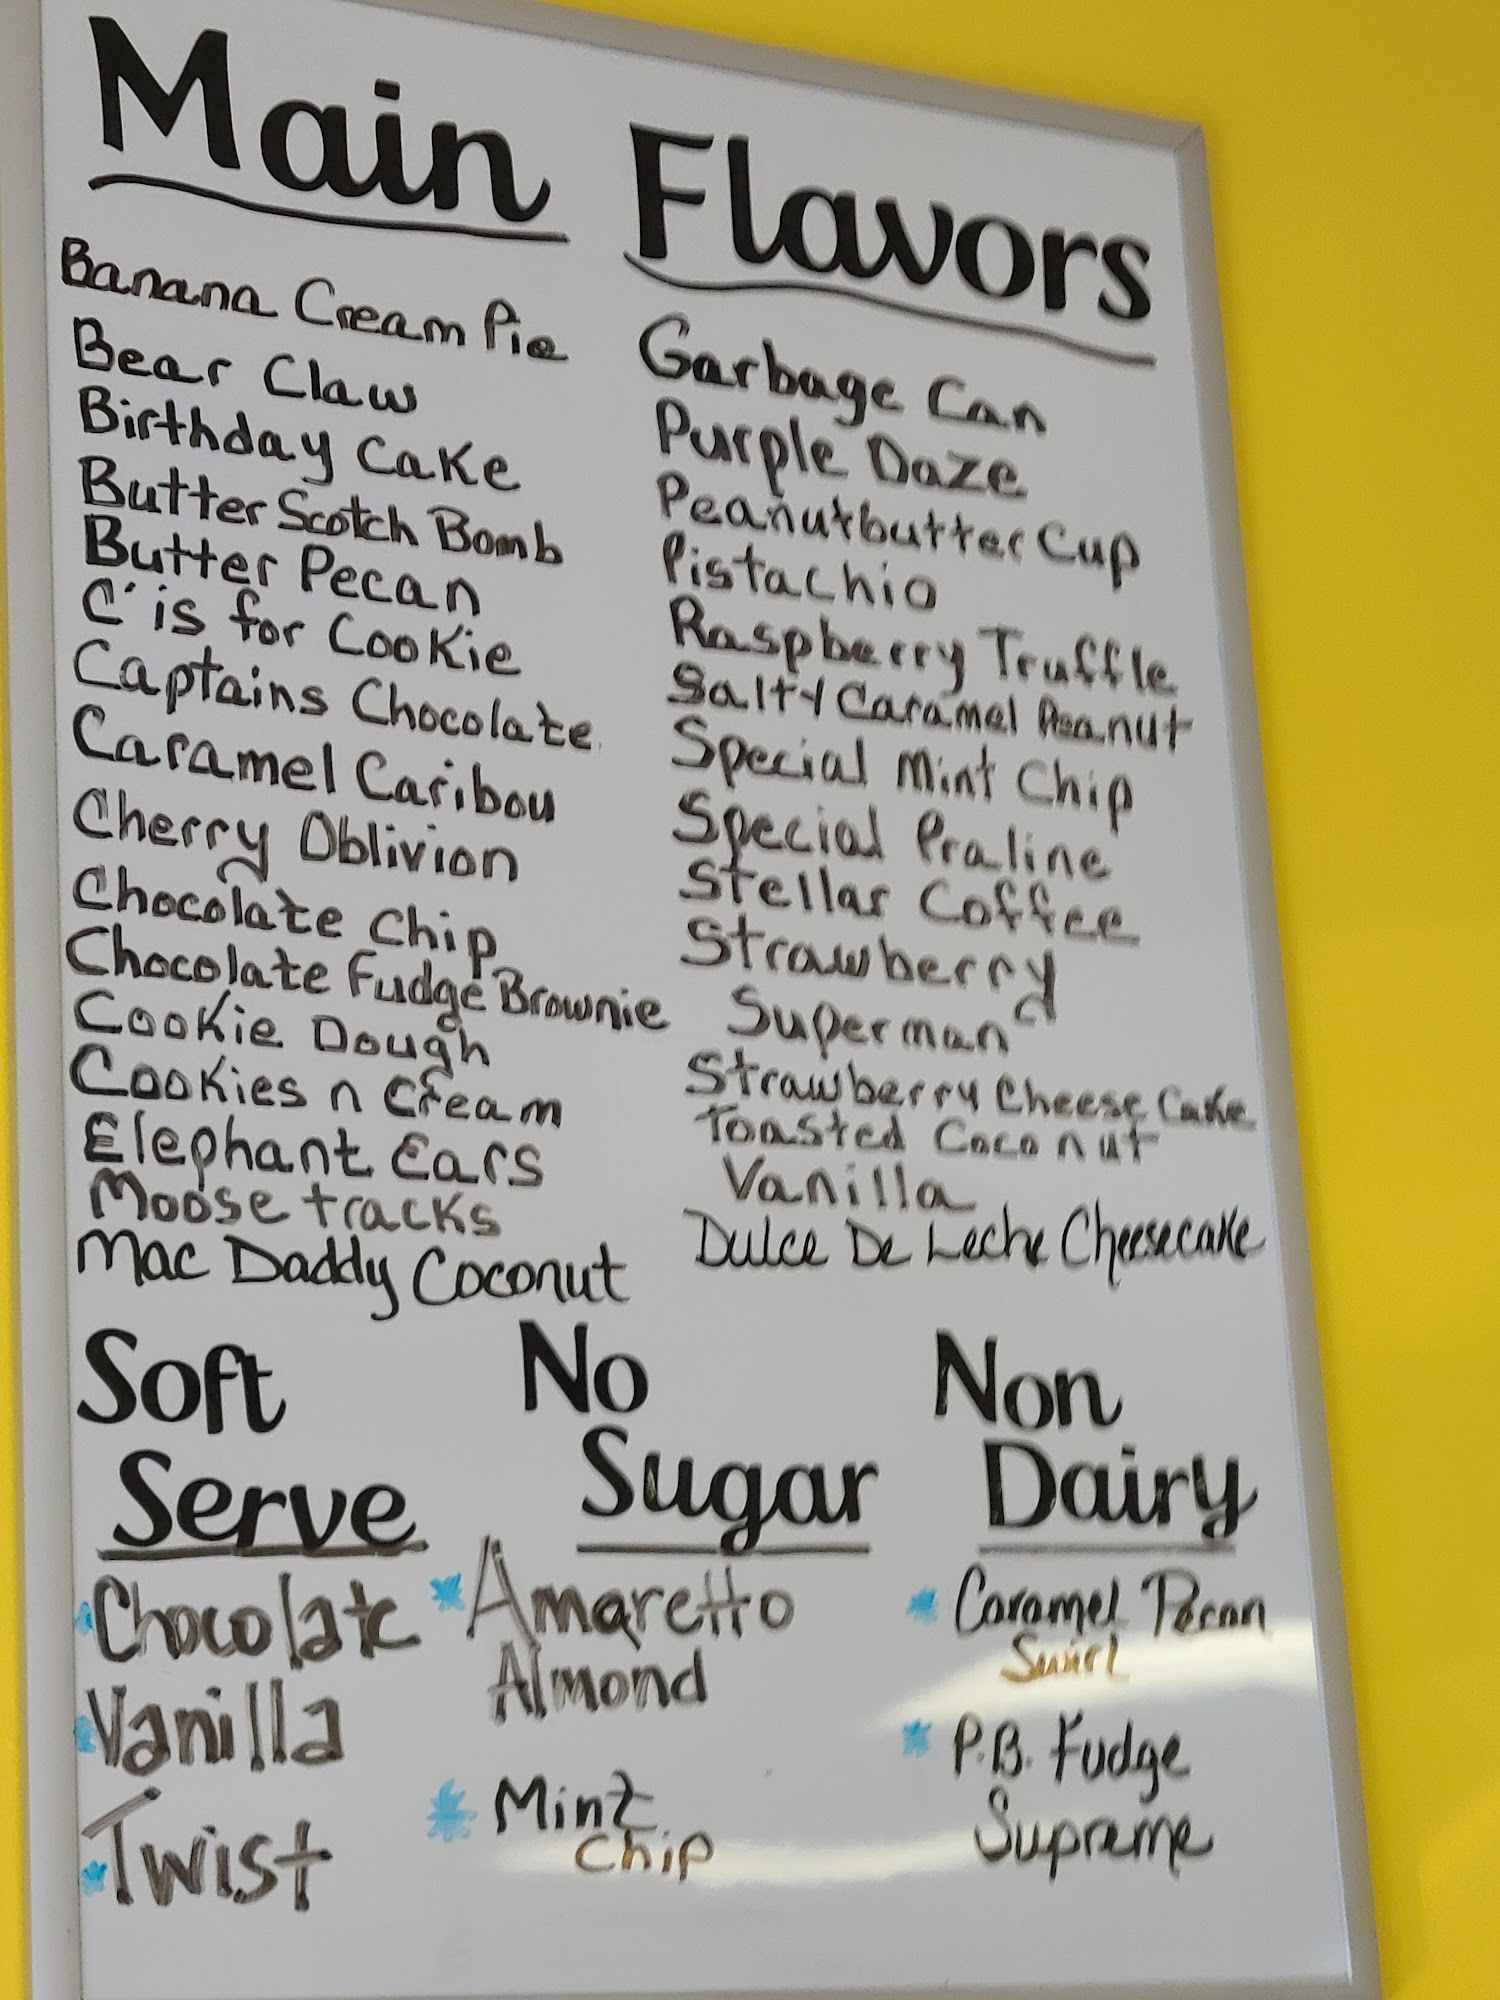 Main Flavors
Banana Cream Pie
Bear Claw
Birthday Cake
Butter Scotch Bomb
Butter Pecan
C' is for Cookie
Captains Chocolate
Caramel Caribou
Cherry Oblivion
Chocolate Chip
Chocolate Fudge Brownie
Cookie Dough
Cookies n Cream
Elephant Ears
Moose tracks
Mac Daddy Coconut
Garbage Can
Purple Daze
Peanutbutter Cup
Pistachio
Raspberry Truffle
Salty Caramel Peanut
Special Mint Chip
Special Praline
Stellar Coffee
Strawberry
Superman
Strawberry Cheese Cake
Toasted Coconut
Vanilla
Dulce De Leche Cheesecake
Soft
Serve
Chocolate
Vanilla
Twist
No
Sugar
Amaretto
Almond
Mint
Chip
Non
Dairy
Caramel Pecan
Swirl
P.B. Fudge
Supreme